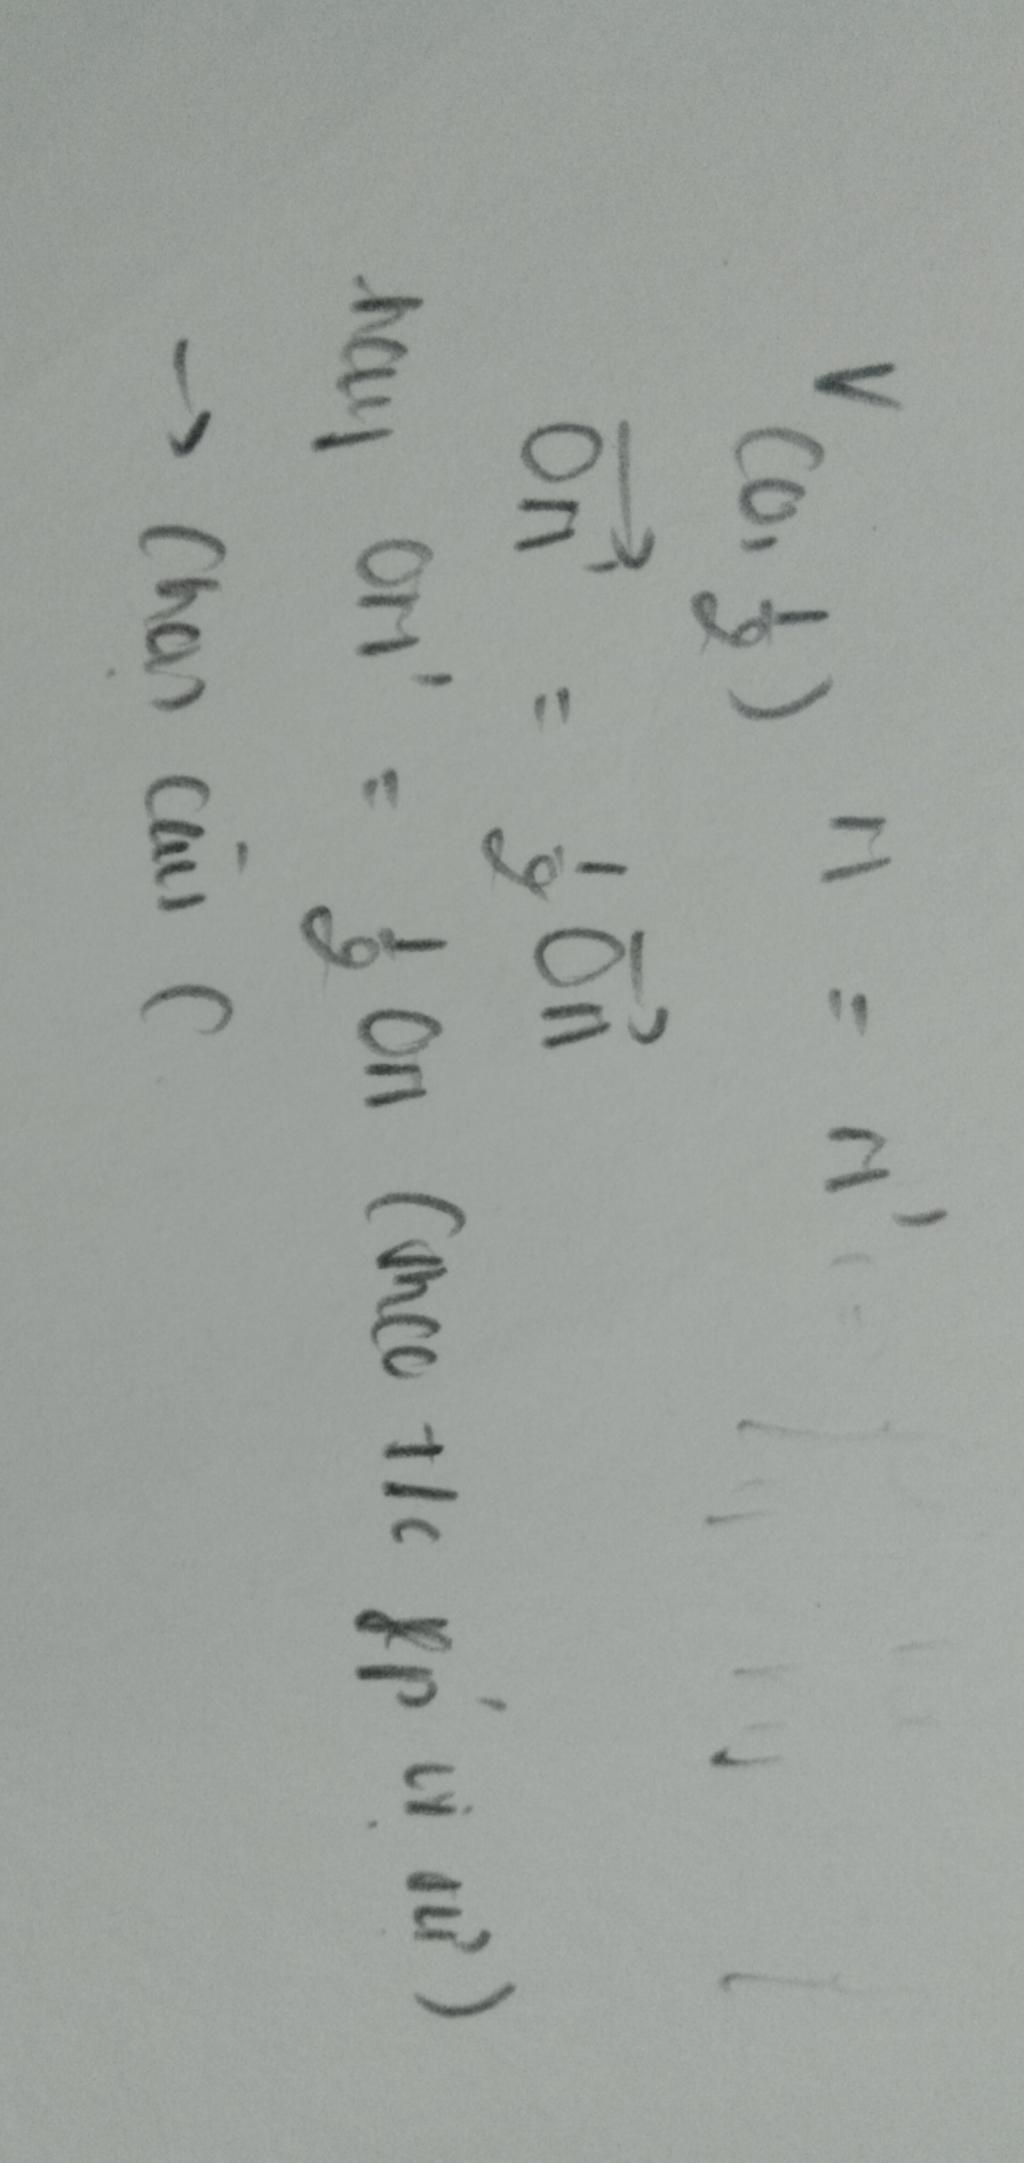 V(O, 1/8) M = M'
OM' = 1/8 OM
hay OM' = 1/8 OM (theo t/c phép vị tự)
→ Chọn câu C